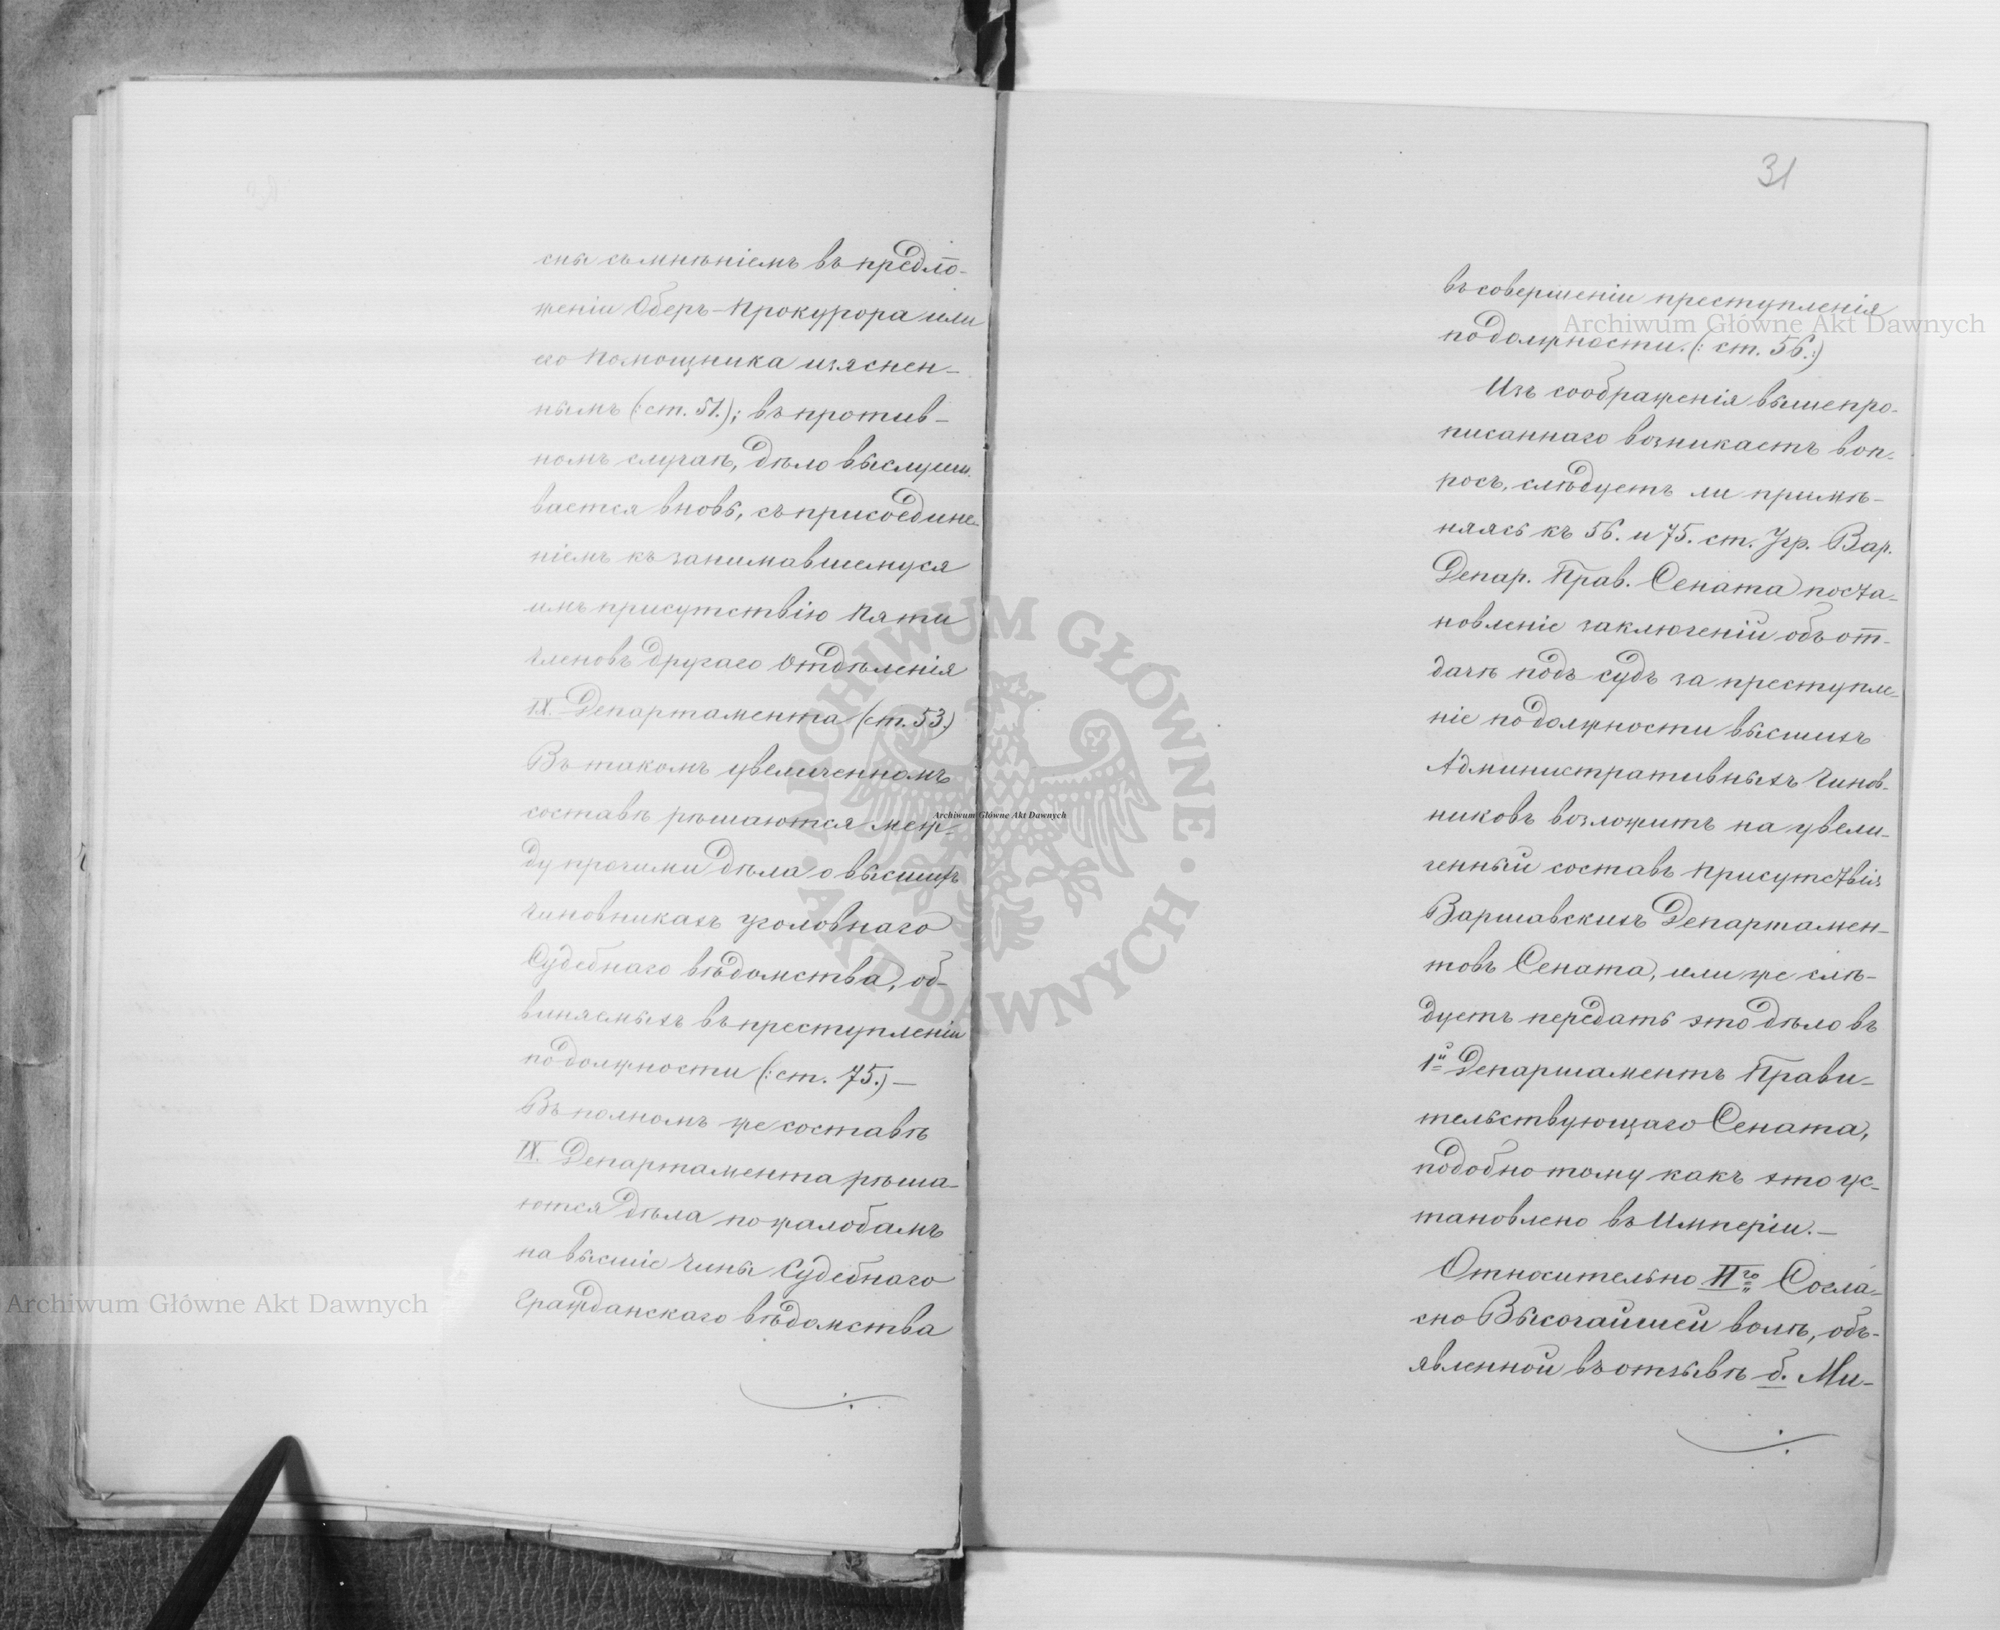 сны съ мнѣніемъ въ предло-
женіи Оберъ-Прокурора или
его Помощника изяснен-
нымъ (: ст. 51.); въ против-
номъ случаѣ, дѣло выслуши-
вается вновь, съ присоедине-
ніемъ къ занимавшемуся
имъ присутствію пяти
членовъ другаго отдѣленія
IX. Департамента (ст. 53.)
Въ такомъ увеличенномъ
составѣ рѣшаются меж-
ду прочими дѣла о высшихъ
чиновникахъ уголовнаго
Судебнаго вѣдомства, об-
виняемыхъ въ преступленіи
по должности (: ст. 75.) —
Въ полномъ же составѣ
IX. Департамента рѣша-
ются дѣла по жалобамъ
на высшіе чины Судебнаго
Гражданскаго вѣдомства
31
въ совершеніи преступленія
по должности. (: ст. 56. :)
Изъ соображенія вышепро-
писаннаго возникаетъ воп-
росъ, слѣдуетъ ли примѣ-
няясь къ 56. и 75. ст. Учр. Вар.
Депар. Прав. Сената поста-
новленіе заключеній объ от-
дачѣ подъ судъ за преступле-
ніе по должности высшихъ
Административныхъ чинов-
никовъ возложить на увели-
ченный составъ присутствія
Варшавскихъ Департамен-
товъ Сената, или же слѣ-
дуетъ передать это дѣло въ
1й Департаментъ Прави-
тельствующаго Сената,
подобно тому какъ это ус-
тановлено въ Имперіи. —
Относительно IIго Согла-
сно Высочайшей волѣ, объ-
явленной въ отзывѣ б. Ми-
Archiwum Główne Akt Dawnych
Archiwum Główne Akt Dawnych
Archiwum Główne Akt Dawnych
ARCHIWUM GŁÓWNE · AKT DAWNYCH ·